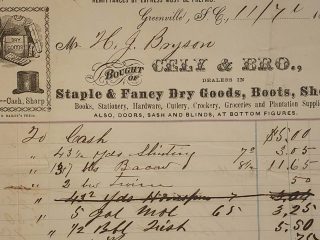 REMITTANCES BY EXPRESS MUST BE PREPAID.
Greenville, S. C., 11/7
DRY GOODS
Mr. H. J. Bryson
BOUGHT OF CELY & BRO.,
DEALERS IN
—Cash, Sharp
Staple & Fancy Dry Goods, Boots, Sho
Books, Stationery, Hardware, Cutlery, Crockery, Groceries and Plantation Supplie
ALSO, DOORS, SASH AND BLINDS, AT BOTTOM FIGURES.
To Cash $5.00
" 43½ yds Shirting 7c 3.05
" 137 lbs Bacon 8½ 11.65
" 2 " Twine 50
" 43½ yds
" 5 Gal Mol 65 3.25
" ½ Bbl Fish 5.50